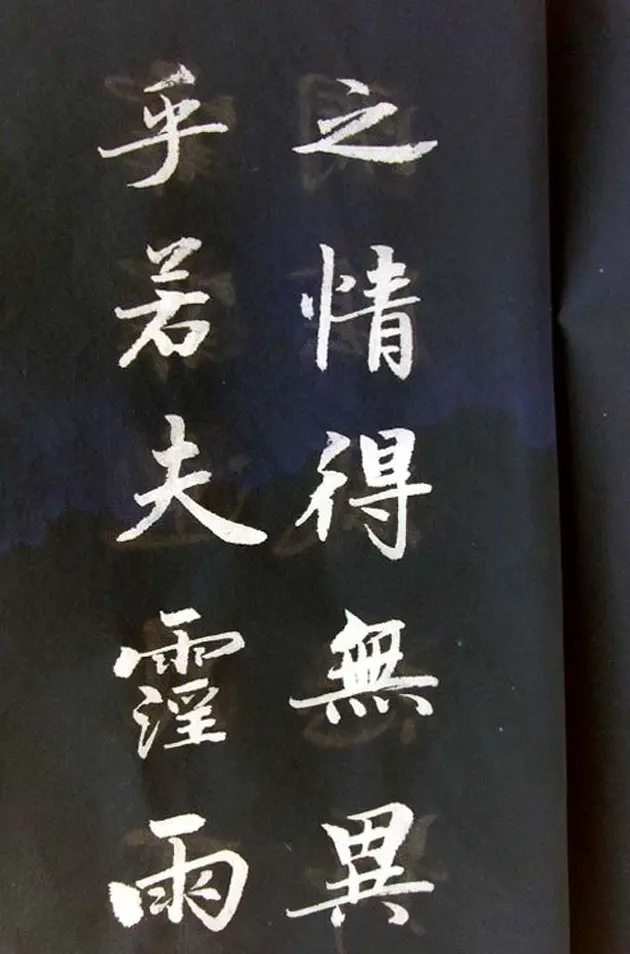 之情得無異
乎若夫霪雨